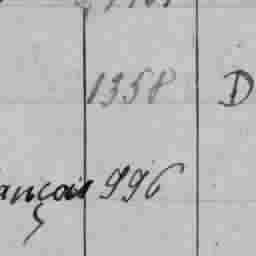 1358 D
ançois 996